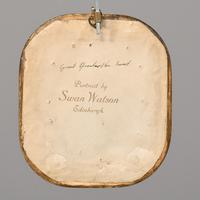 Great Grandmother Sweet
Portrait by
Swan Watson
Edinburgh.